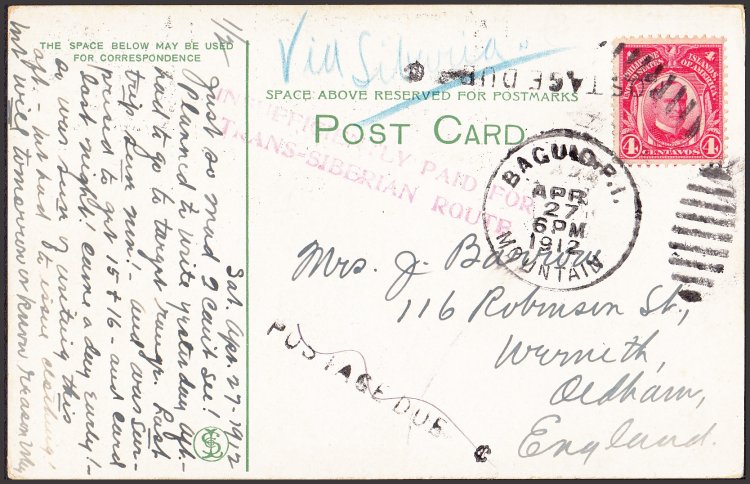 THE SPACE BELOW MAY BE USED
FOR CORRESPONDENCE
1/2
Sat. Apr. 27-1912
Just so mad I can't see!
Planned to write yesterday aft-
had to go to target range. Last
trip sun mor.! - and was sur-
prised to get 15 & 16 - and card
last night! came a day early! -
so was sure of writing this
aft. - but had to issue clothing!
will tomorrow or know reason why
Via Siberia.
SPACE ABOVE RESERVED FOR POSTMARKS
POST CARD
POSTAGE DUE ¢
INSUFFICIENTLY PAID FOR
TRANS-SIBERIAN ROUTE
PHILIPPINE ISLANDS
UNITED STATES OF AMERICA
4 4
4 CENTAVOS 4
BAGUIO, P.I.
APR
27
6 PM
1912
MOUNTAIN
Mrs. J. Barrow
116 Robinson St.,
Werneth,
Oldham,
England.
POSTAGE DUE ¢